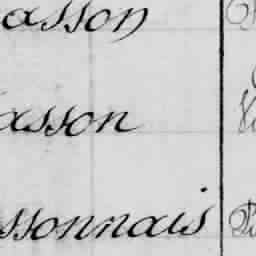 asson
asson
ssonnais